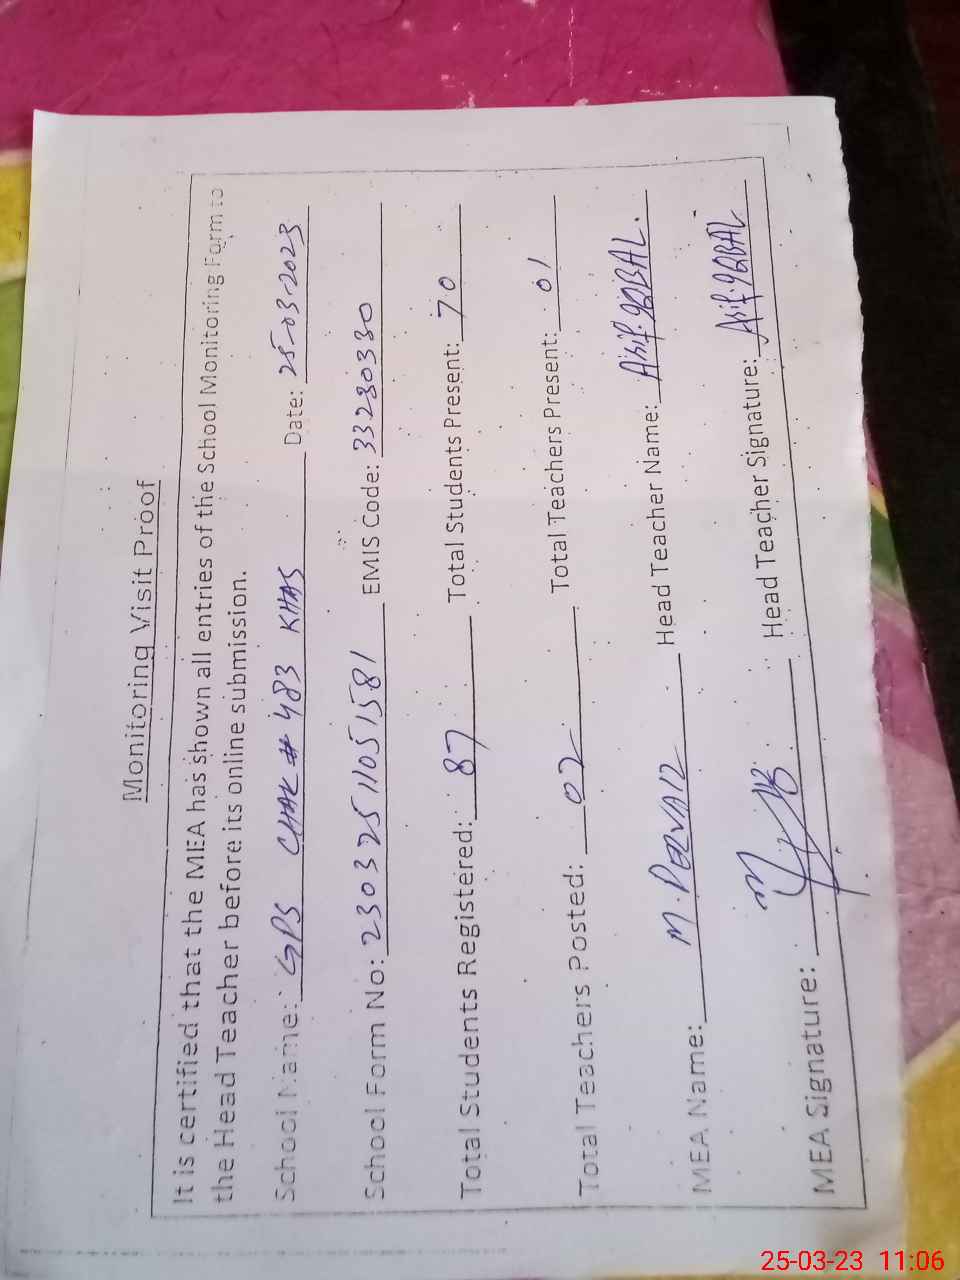 Monitoring Visit Proof
It is certified that the MEA has shown all entries of the School Monitoring Form to
the Head Teacher before its online submission.
School Name: GPS CHAK # 483 KHAS Date: 25-03-2023
School Form No: 23032511051581 EMIS Code: 33230330
Total Students Registered: 87 Total Students Present: 70
Total Teachers Posted: 02 Total Teachers Present: 01
MEA Name: M. PERVAIZ Head Teacher Name: Asif IQBAL.
MEA Signature: Head Teacher Signature: Asif IQBAL
25-03-23 11:06